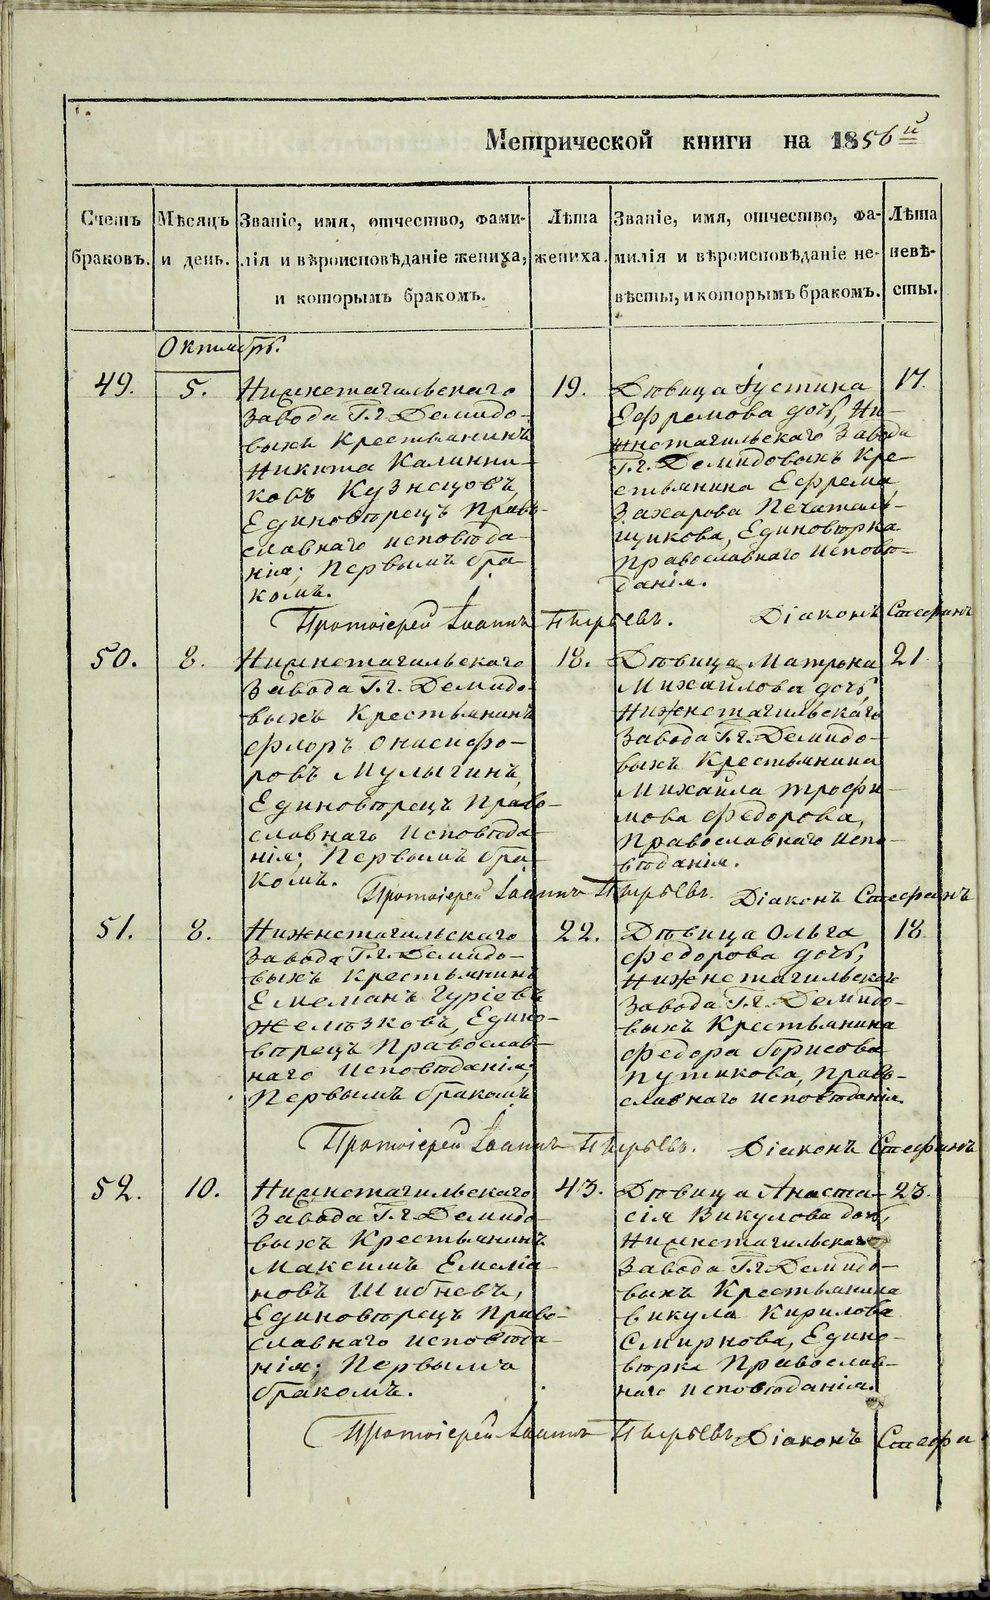 Метрической книги на 1856й
Счетъ браковъ.
Мѣсяцъ и день.
Званіе, имя, отчество, фами-
лія и вѣроисповѣданіе жениха,
и которымъ бракомъ.
Лѣта жениха.
Званіе, имя, отчество, фа-
милія и вѣроисповѣданіе не-
вѣсты, и которымъ бракомъ.
Лѣта невѣ-
сты.
Октябрь.
49.
5.
Нижнетагильскаго
Завода Г.г. Демидо-
выхъ Крестьянинъ
Никита Калинни-
ковъ Кузнецовъ,
Единовѣрецъ Право-
славнаго исповѣда-
нія; Первымъ бра-
комъ.
19.
Дѣвица Іустина
Ефремова дочь, Ни-
жнетагильскаго Завода
Г.г. Демидовыхъ Кре-
стьянина Ефрема
Захарова Печаталь-
щикова, Единовѣрка
Православнаго исповѣ-
данія.
17.
Протоіерей Іоаннъ Пырьевъ. Діаконъ Стефанъ
50.
8.
Нижнетагильскаго
Завода Г.г. Демидо-
выхъ Крестьянинъ
Флоръ Онисифо-
ровъ Мулыгинъ,
Единовѣрецъ Право-
славнаго Исповѣда-
нія; Первымъ бра-
комъ.
18.
Дѣвица Матрона
Михайлова дочь,
Нижнетагильскаго
Завода Г.г. Демидо-
выхъ Крестьянина
Михайла Трофи-
мова Федорова,
Православнаго испо-
вѣданія.
21.
Протоіерей Іоаннъ Пырьевъ. Діаконъ Стефанъ
51.
8.
Нижнетагильскаго
Завода Г.г. Демидо-
выхъ Крестьянинъ
Емелианъ Гуріевъ
Желѣзковъ, Едино-
вѣрецъ Православ-
наго Исповѣданія;
Первымъ бракомъ
22.
Дѣвица Ольга
Федорова дочь,
Нижнетагильскаго
Завода Г.г. Демидо-
выхъ Крестьянина
Федора Борисова
Путикова, Право-
славнаго исповѣданія.
18.
Протоіерей Іоаннъ Пырьевъ. Діаконъ Стефанъ
52.
10.
Нижнетагильскаго
Завода Г.г. Демидо-
выхъ Крестьянинъ
Максимъ Емелиа-
новъ Шибневъ,
Единовѣрецъ Право-
славнаго исповѣда-
нія; Первымъ
бракомъ.
43.
Дѣвица Анаста-
сія Викулова дочь,
Нижнетагильскаго
Завода Г.г. Демидо-
выхъ Крестьянина
Викула Кирилова
Смирнова, Едино-
вѣрка Православ-
наго исповѣданія.
23.
Протоіерей Іоаннъ Пырьевъ. Діаконъ Стефа